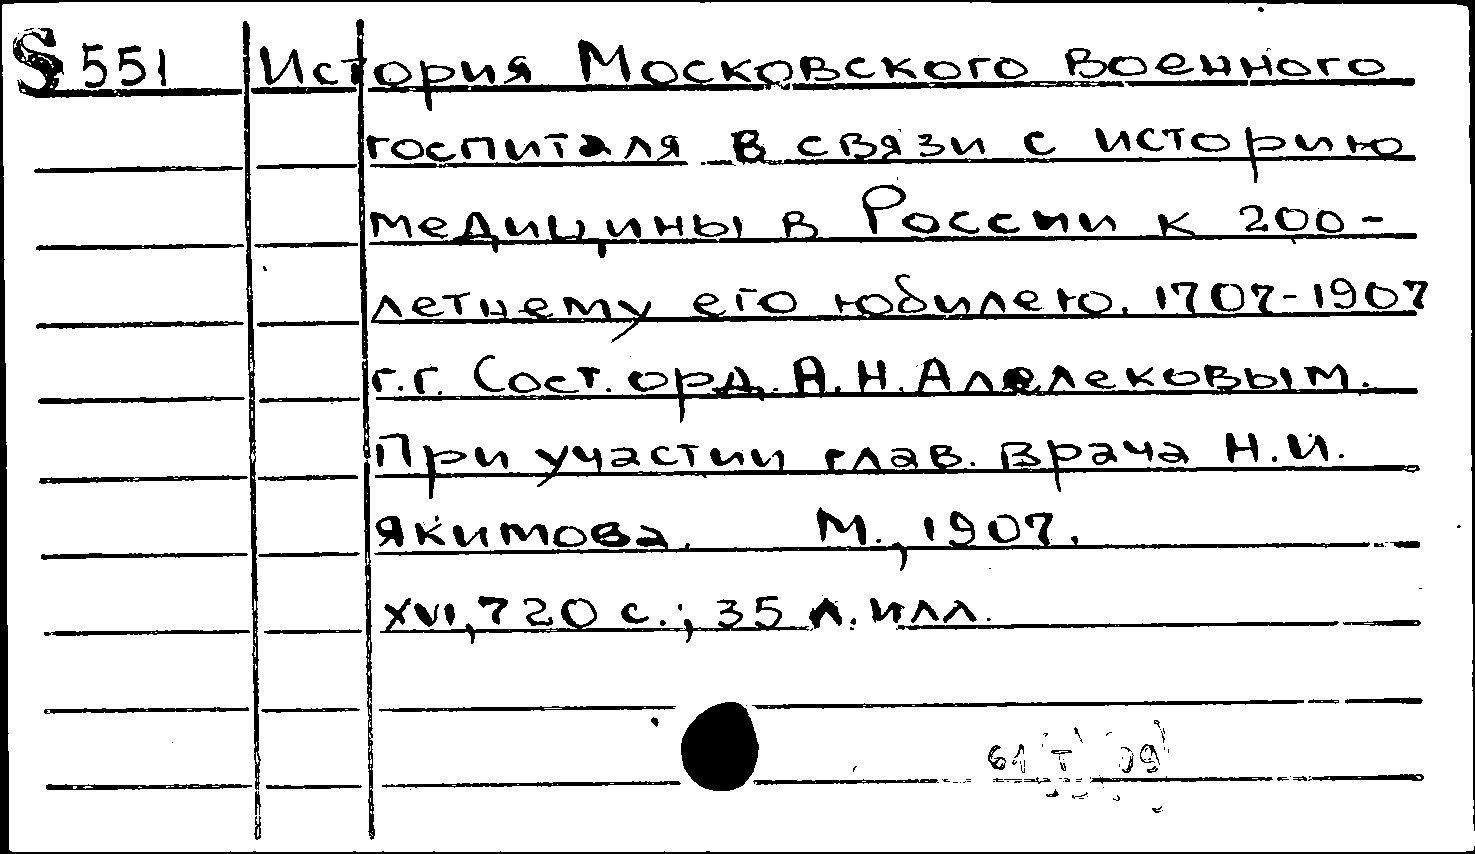 S 551 История Московского Военного
госпиталя в связи с историю
медицины в России к 200-
летнему его юбилею. 1707-1907
г.г. Сост. орд. А.Н.Алелековым.
При участии глав. врача Н.И.
Якимова. М., 1907.
XVI, 720 с.; 35 л. илл.
61